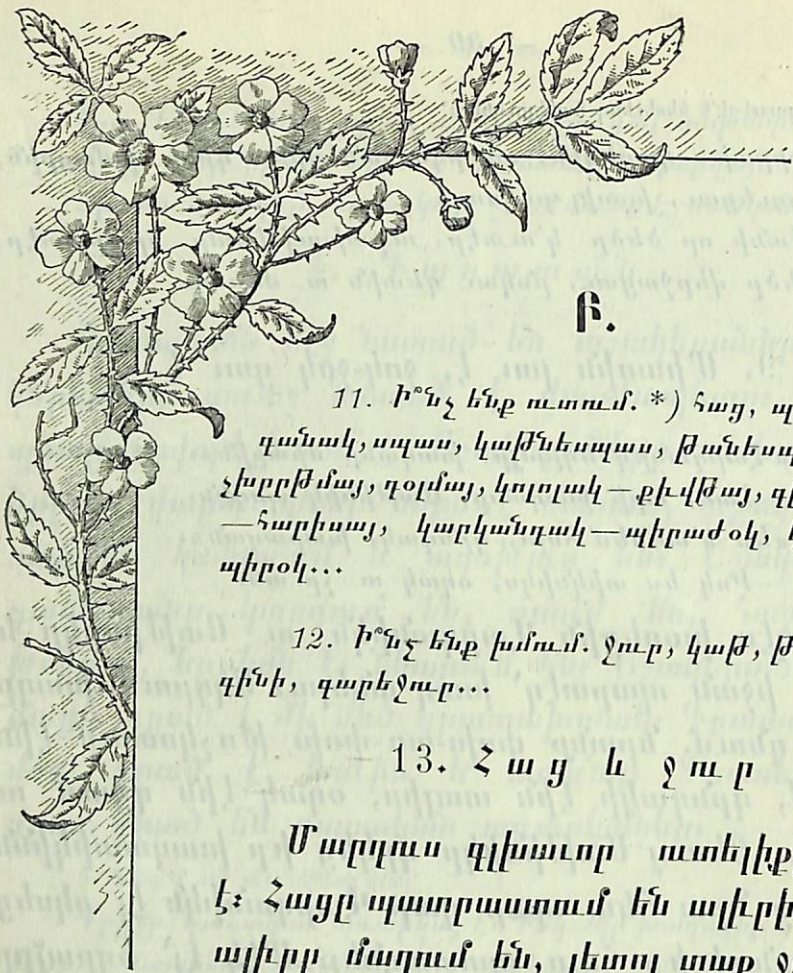 Բ.
11. Ի՞նչ ենք ուտում. *) հաց, պ
դանակ, սպաս, կաթնեսպաս, թանեսպ
չխըրթմայ, դօլմայ, կոլոլակ — քիւֆթայ, գլ
— հարիսայ, կարկանդակ — պիրաժօկ,
պիրօկ...
12. Ի՞նչ ենք խմում. ջուր, կաթ, թ
գինի, գարեջուր...
13. Հաց և ջուր
Մարդուս գլխաւոր ուտելիք
է: Հացը պատրաստում են ալիւրի
ալիւրը մաղում են, յետոյ տաք ջ